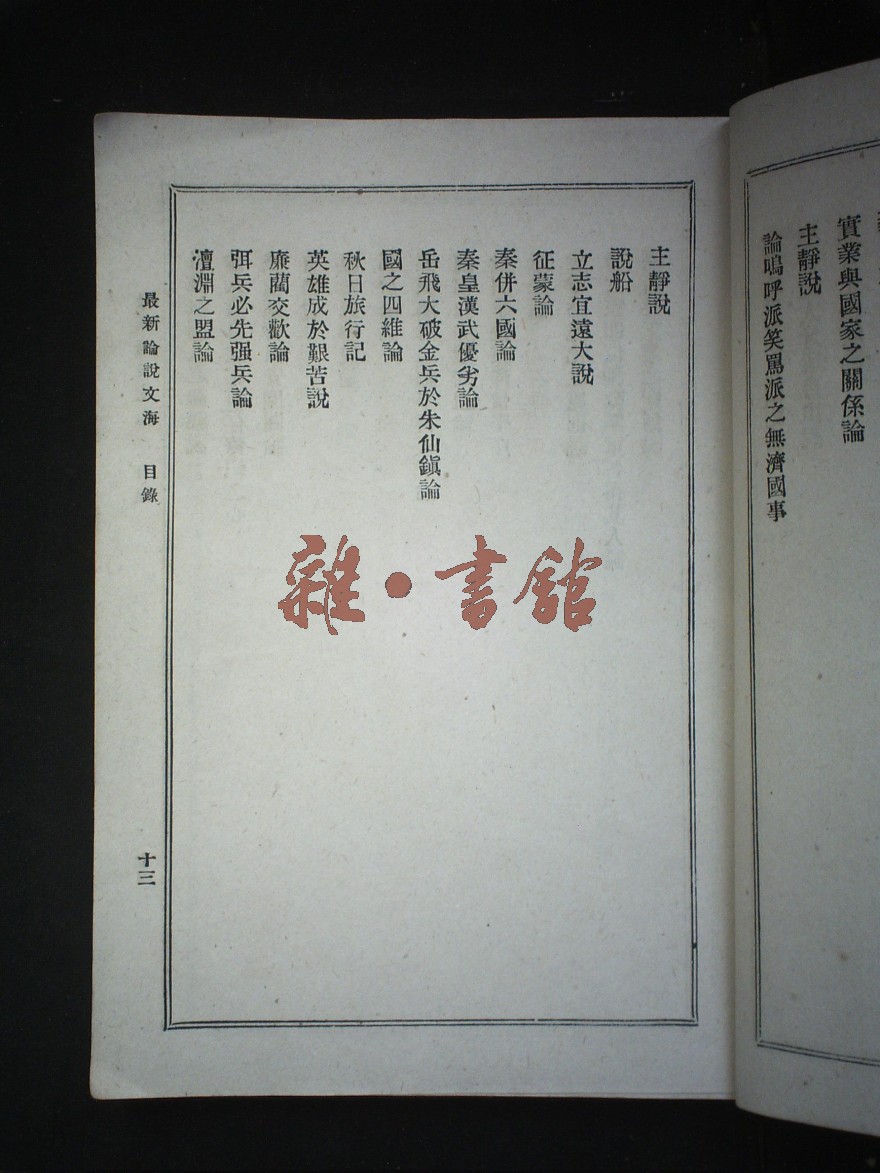 實業與國家之關係論
主靜說
論嗚呼派笑罵派之無濟國事
主靜說
說船
立志宜遠大說
征蒙論
秦併六國論
秦皇漢武優劣論
岳飛大破金兵於朱仙鎮論
國之四維論
秋日旅行記
英雄成於艱苦說
廉藺交歡論
弭兵必先强兵論
澶淵之盟論
最新論說文海 目錄
十三
雜·書館